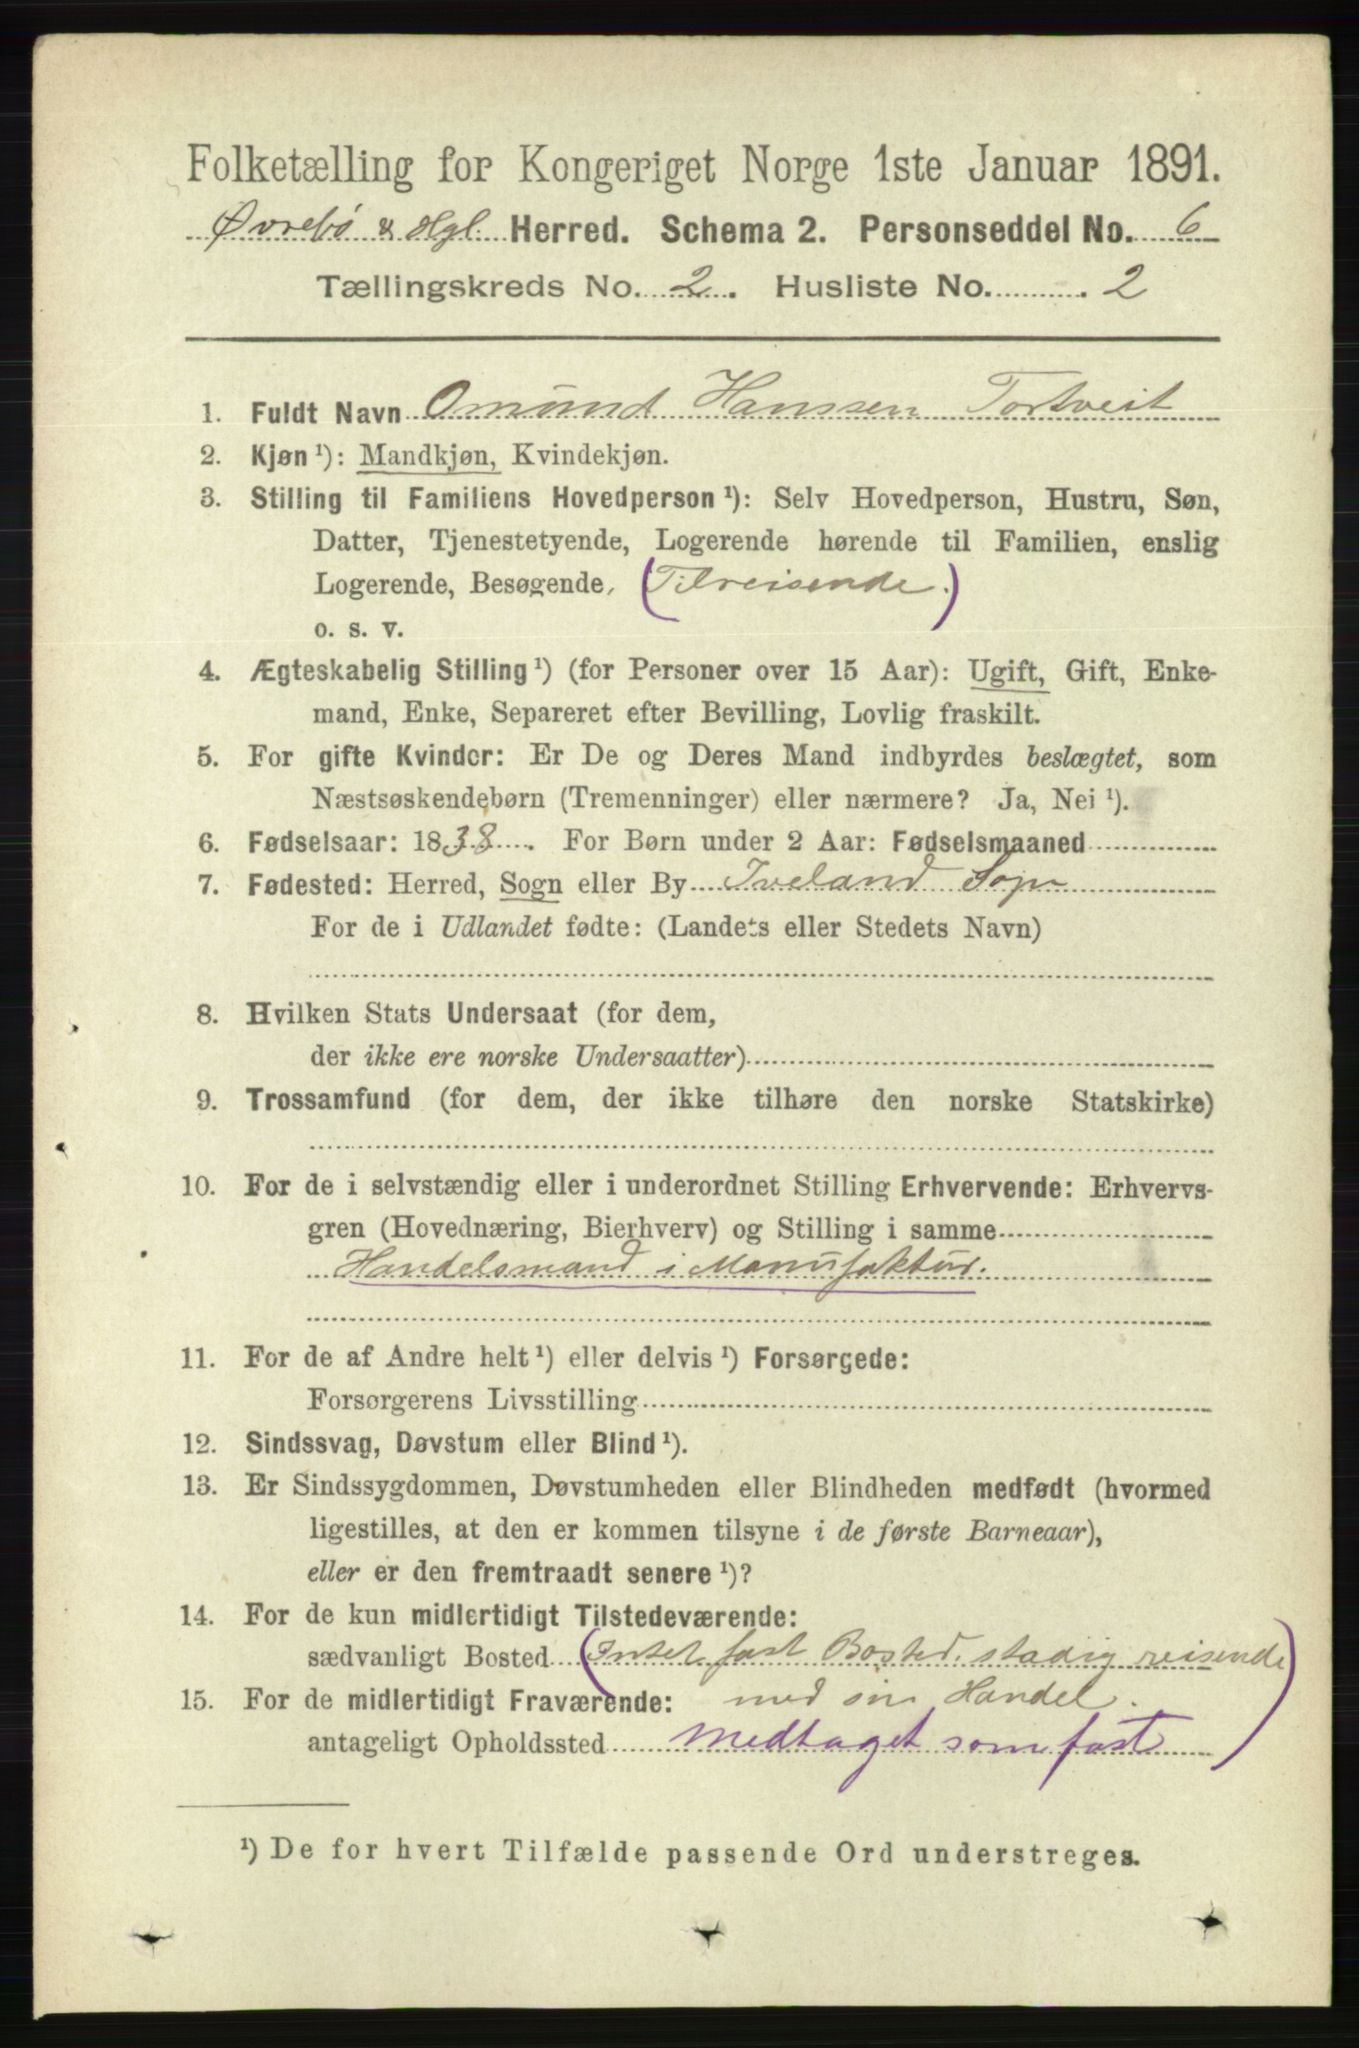 Folketælling for Kongeriget Norge 1ste Januar 1891.
Øvrebø & Hgl. Herred. Schema 2. Personseddel No. 6
Tællingskreds No. 2. Husliste No. 2
1. Fuldt Navn Omund Hanssen Tortveit
2. Kjøn ¹): Mandkjøn, Kvindekjøn.
3. Stilling til Familiens Hovedperson ¹): Selv Hovedperson, Hustru, Søn,
Datter, Tjenestetyende, Logerende hørende til Familien, enslig
Logerende, Besøgende, (Tilreisende.)
o. s. v.
4. Ægteskabelig Stilling ¹) (for Personer over 15 Aar): Ugift, Gift, Enke-
mand, Enke, Separeret efter Bevilling, Lovlig fraskilt.
5. For gifte Kvinder: Er De og Deres Mand indbyrdes beslægtet, som
Næstsøskendebørn (Tremenninger) eller nærmere? Ja, Nei ¹).
6. Fødselsaar: 1838. For Børn under 2 Aar: Fødselsmaaned
7. Fødested: Herred, Sogn eller By Iveland Sogn
For de i Udlandet fødte: (Landets eller Stedets Navn)
8. Hvilken Stats Undersaat (for dem,
der ikke ere norske Undersaatter)
9. Trossamfund (for dem, der ikke tilhøre den norske Statskirke)
10. For de i selvstændig eller i underordnet Stilling Erhvervende: Erhvervs-
gren (Hovednæring, Bierhverv) og Stilling i samme
Handelsmand i Manufaktur.
11. For de af Andre helt ¹) eller delvis ¹) Forsørgede:
Forsørgerens Livsstilling
12. Sindssvag, Døvstum eller Blind ¹).
13. Er Sindssygdommen, Døvstumheden eller Blindheden medfødt (hvormed
ligestilles, at den er kommen tilsyne i de første Barneaar),
eller er den fremtraadt senere ¹)?
14. For de kun midlertidigt Tilstedeværende:
sædvanligt Bosted (Intet fast Bosted, stadig reisende
15. For de midlertidigt Fraværende: med sin Handel.)
antageligt Opholdssted Medtaget som fast
¹) De for hvert Tilfælde passende Ord understreges.